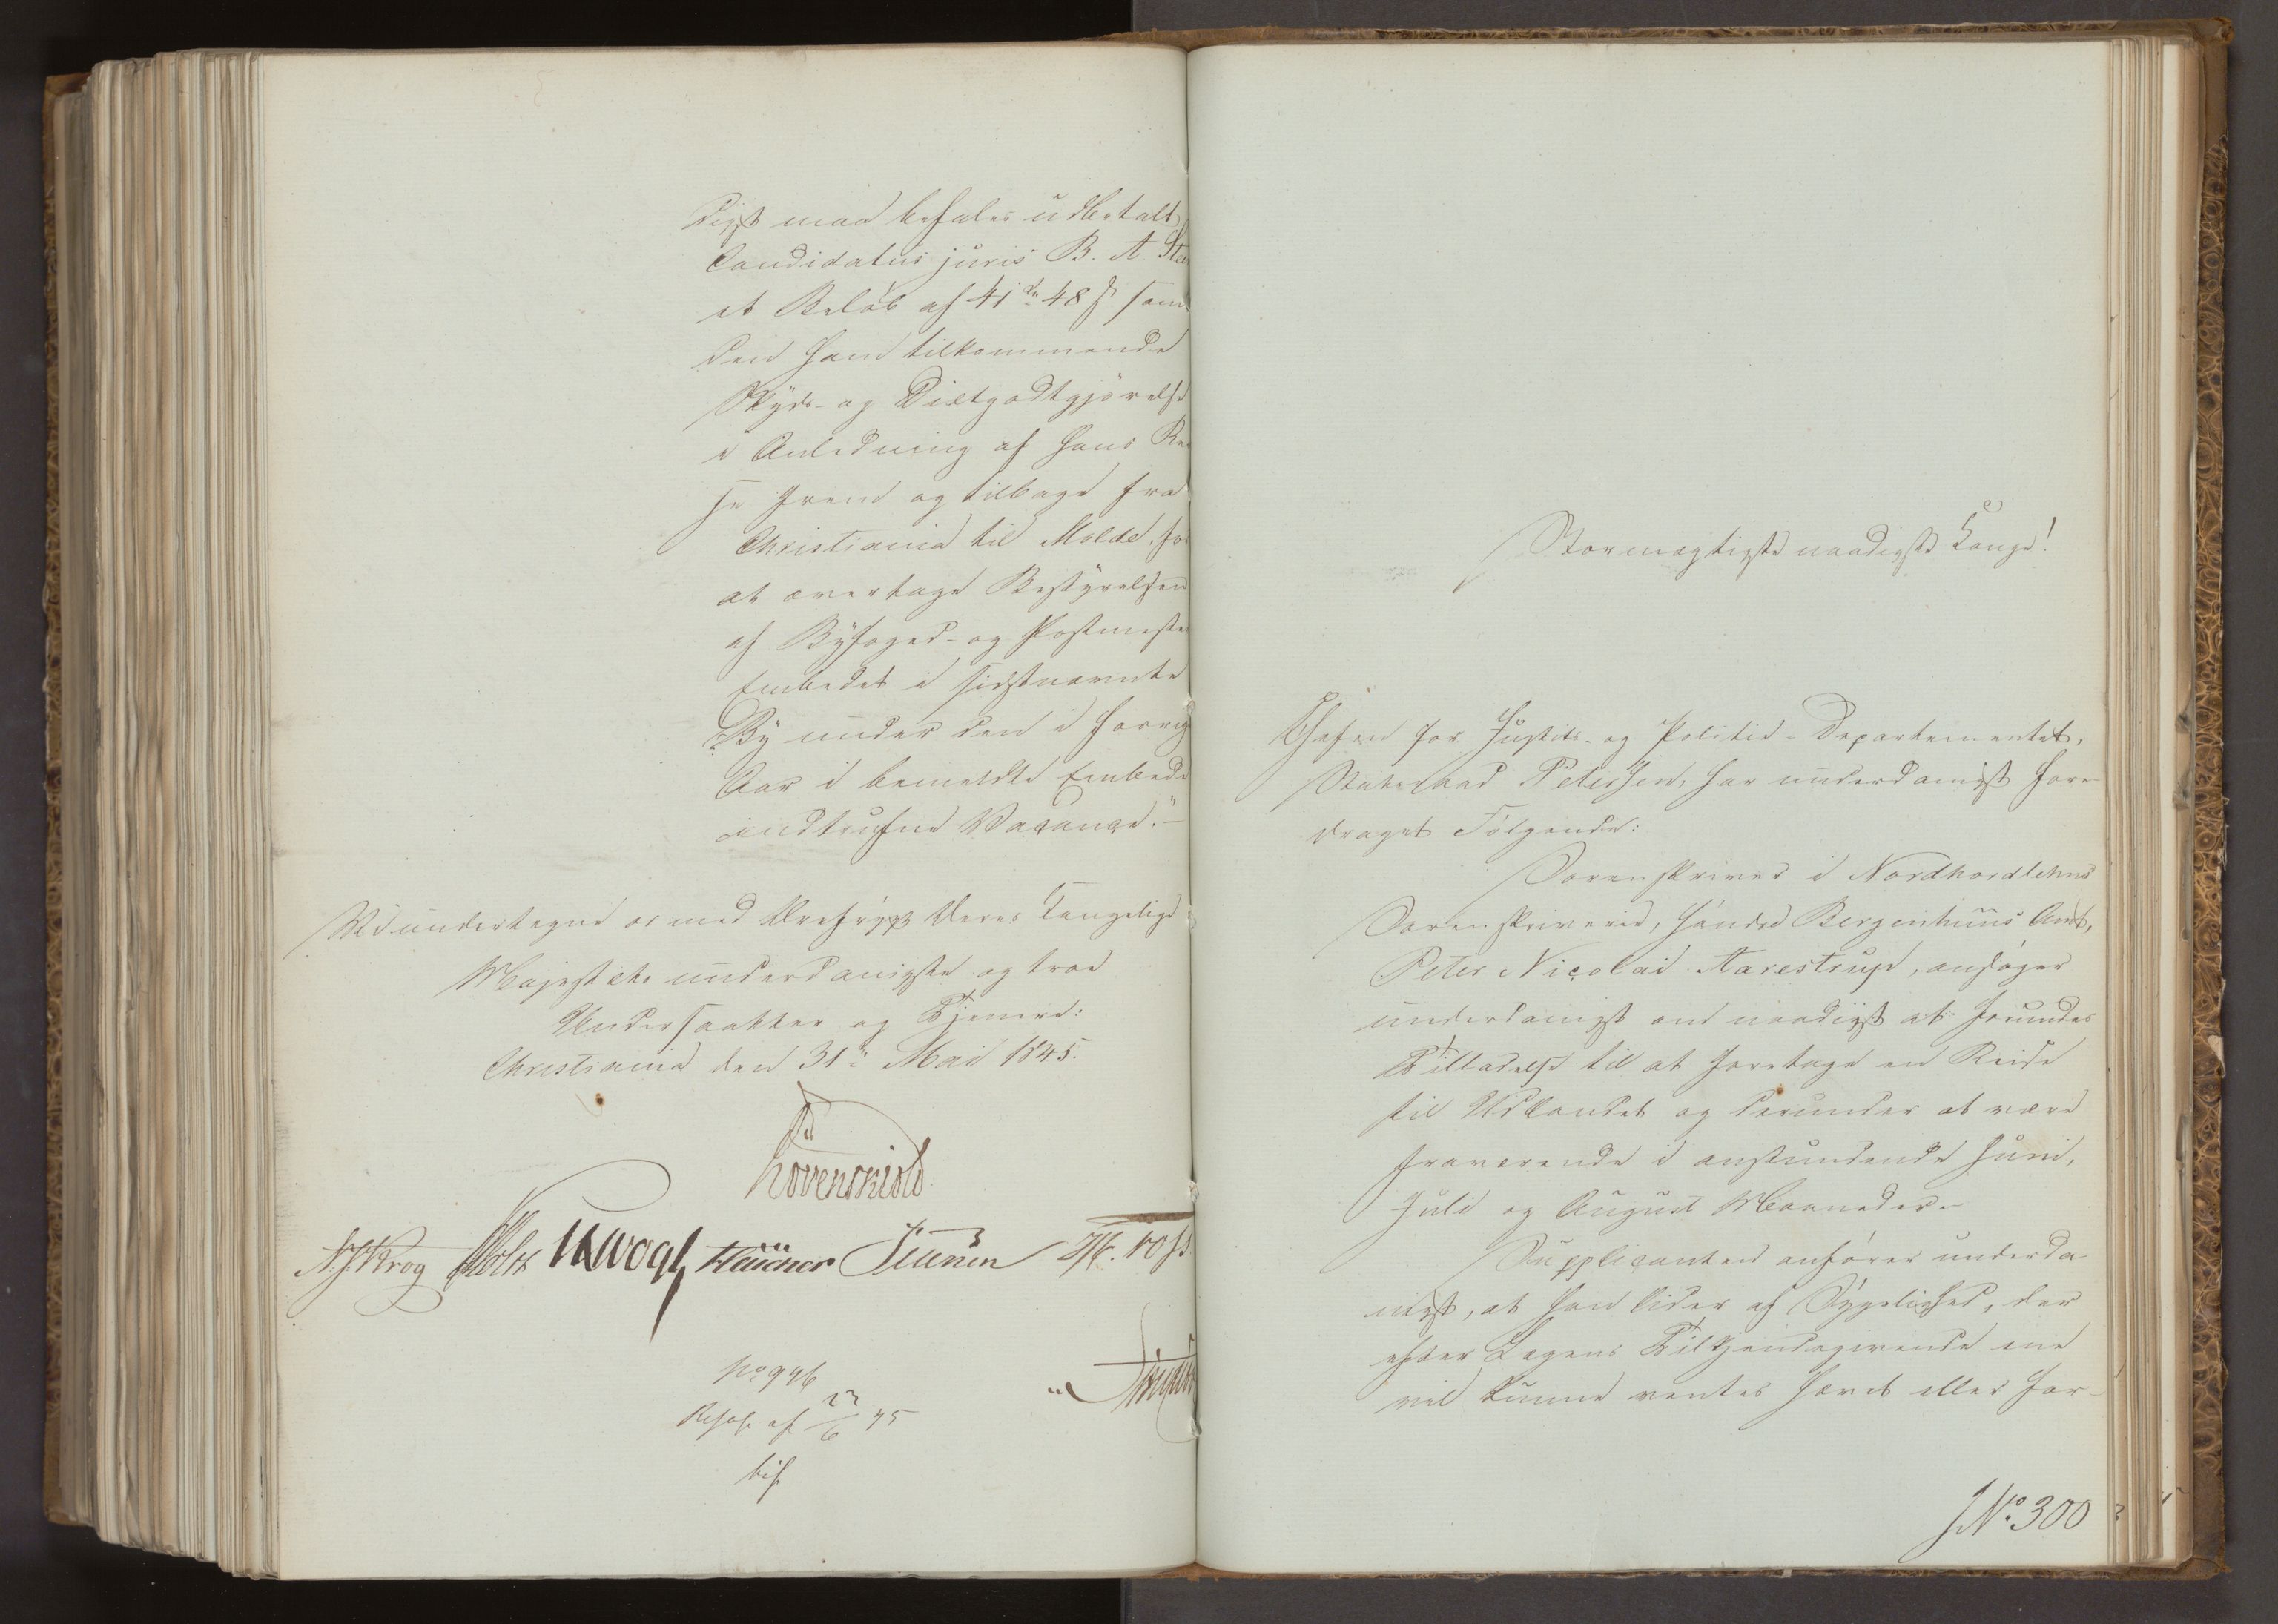 digst maa befales udbetalt
Candidatus juris B. A. Ste
et Beløb af 41 Sp 48 ß som
den ham tilkommende
Skyds- og Diætgodtgjørelse
i Anledning af hans Rei
se frem og tilbage fra
Christiania til Molde, for
at overtage Bestyrelsen
af Byfoged- og Postmester
Embedet i sidstnævnte
By under den i forrige
Aar i bemeldte Embede
indtrufne Vacance."-
Vi undertegne os med Ærefrygt Deres Kongelige
Majestæts underdanigste og troe
Undersaatter og Tjenere:
Christiania den 31te Mai 1845.
Løvenskiold
N. J. Krog Holst Vogt Petersen
No 996
Resol. af 23/6 45
bif.
Stormægtigste naadigste Konge!
Chefen for Justits- og Politie-Departementet,
Statsraad Petersen, har underdanigst fore-
draget Følgende:
Sorenskriver i Nordhordlehns
Sorenskriverie, søndre Bergenhuus Amt,
Peter Nicolai Aarestrup, ansøger
underdanigst om naadigst at forundes
Tilladelse til at foretage en Reise
til Udlandet og derunder at være
fraværende i anstundende Juni,
Juli og August Maaneder.-
Supplicanten anfører underda-
nigst, at han lider af Sygelighed, der
efter Lægens Tilkjendegivende ene
vil kunne ventes hævet eller for-
J No 300